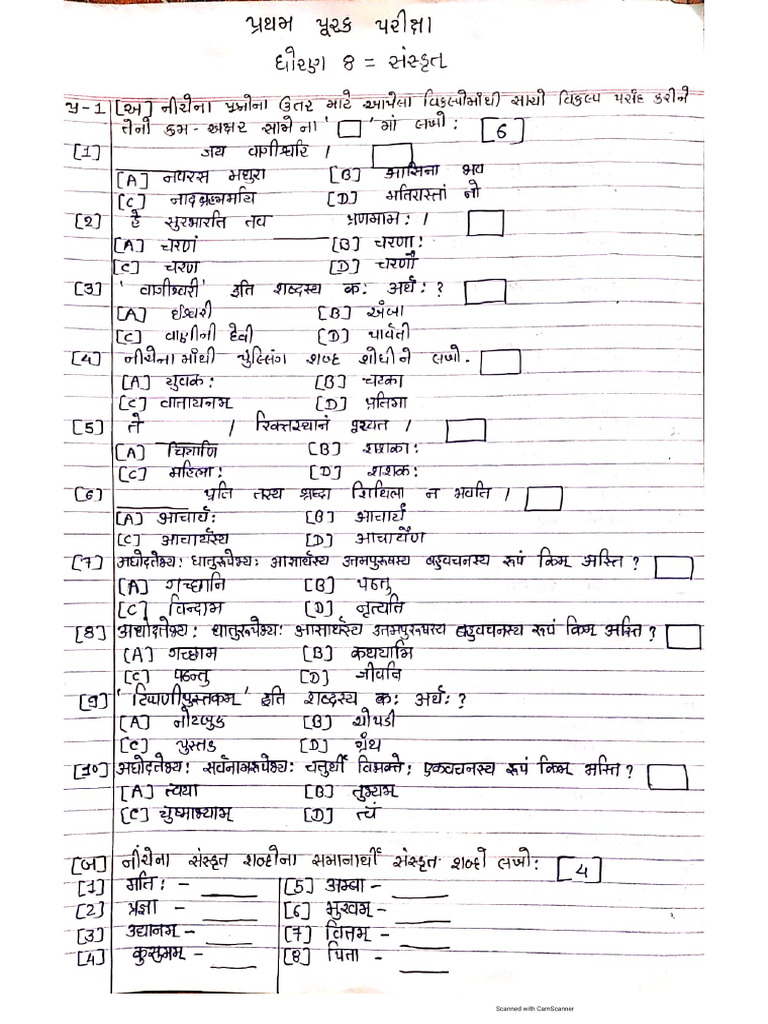 પ્રથમ પૂરક પરીક્ષા
ધોરણ 8 = સંસ્કૃત
પ્ર-1 [અ] નીચેના પ્રશ્નોના ઉત્તર માટે આપેલા વિકલ્પોમાંથી સાચો વિકલ્પ પસંદ કરીને
તેનો ક્રમ-અક્ષર સામેના '□' માં લખો: [6]
[1] जय वागीश्वरि ।
[A] नवरस मधुरा [B] आसिना भव
[C] नादब्रह्ममयि [D] मतिरास्तां नो
[2] हे सुरभारति तव ______ प्रणमामः ।
[A] चरणं [B] चरणाः
[C] चरण [D] चरणौ
[3] 'वागीश्वरी' इति शब्दस्य कः अर्थः ?
[A] ઈશ્વરી [B] અંબા
[C] વાણીની દેવી [D] પાર્વતી
[4] નીચેનામાંથી પુંલ્લિંગ શબ્દ શોધીને લખો.
[A] युवकः [B] चटका
[C] वातायनम् [D] प्रतिमा
[5] ते ______ । रिक्तस्थानं पूरयत ।
[A] चित्राणि [B] शशकाः
[C] महिलाः [D] शशकः
[6] ______ प्रति तस्य श्रद्धा शिथिला न भवति ।
[A] आचार्यः [B] आचार्यं
[C] आचार्यस्य [D] आचार्येण
[7] अधोदत्तेभ्यः धातुरूपेभ्यः आज्ञार्थस्य उत्तमपुरुषस्य बहुवचनस्य रूपं किम् अस्ति ?
[A] गच्छानि [B] पठतु
[C] विन्दाम [D] नृत्यति
[8] अधोदत्तेभ्यः धातुरूपेभ्यः आज्ञार्थस्य उत्तमपुरुषस्य बहुवचनस्य रूपं किम् अस्ति ?
[A] गच्छाम [B] कथयामि
[C] पठन्तु [D] जीवनि
[9] 'टिप्पणीपुस्तकम्' इति शब्दस्य कः अर्थः ?
[A] નોટબુક [B] ચોપડી
[C] પુસ્તક [D] ગ્રંથ
[10] अधोदत्तेभ्यः सर्वनामरूपेभ्यः चतुर्थी विभक्तेः एकवचनस्य रूपं किम् अस्ति ?
[A] त्वया [B] तुभ्यम्
[C] युष्माभ्याम् [D] त्वं
[બ] નીચેના સંસ્કૃત શબ્દોના સમાનાર્થી સંસ્કૃત શબ્દો લખો: [4]
[1] मतिः - ______ [5] अम्बा - ______
[2] प्रज्ञा - ______ [6] मुखम् - ______
[3] उद्यानम् - ______ [7] वित्तम् - ______
[4] कुसुमम् - ______ [8] पिता - ______
Scanned with CamScanner